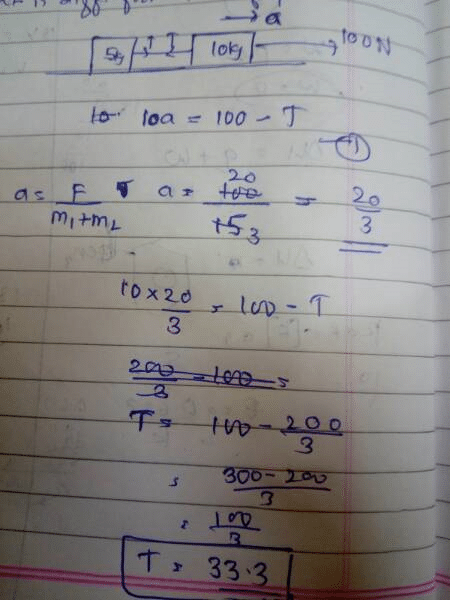 → a
5kg T T 10kg → 100N
10a = 100 - T
①
a = F/m₁+m₂ a = 20/3 = 20/3
10 × 20/3 = 100 - T
200/3 = 100 =
T = 100 - 200/3
= 300 - 200/3
= 100/3
T = 33.3